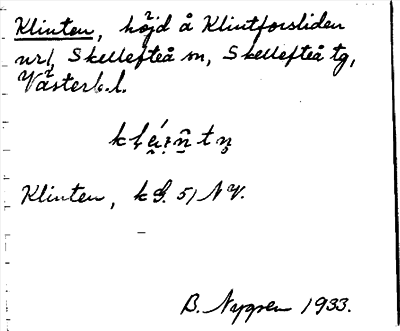 Klinten, höjd å Klintforsliden
nr1, Skellefteå sn, Skellefteå tg,
Västerb.l.
Klinten, k
B. Nygren 1933.